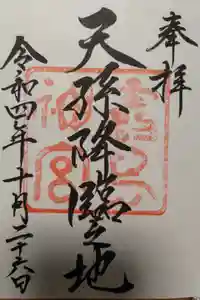 奉拝
天孫降臨之地
令和四年十月二十六日